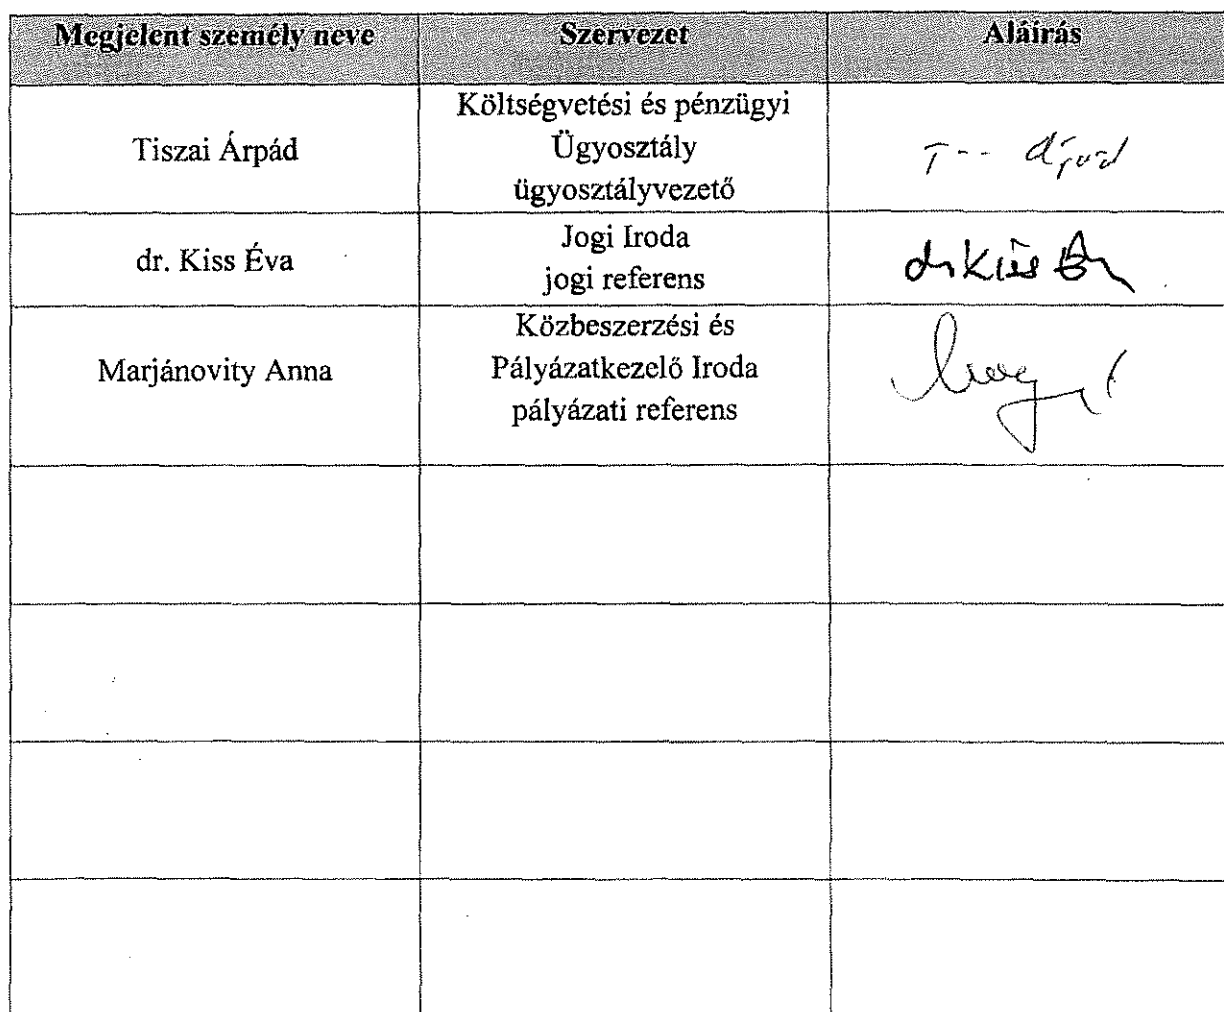 Megjelent személy neve
Szervezet
Aláírás
Tiszai Árpád
Költségvetési és pénzügyi
Ügyosztály
ügyosztályvezető
Árpád
dr. Kiss Éva
Jogi Iroda
jogi referens
dr Kiss Éva
Marjánovity Anna
Közbeszerzési és
Pályázatkezelő Iroda
pályázati referens